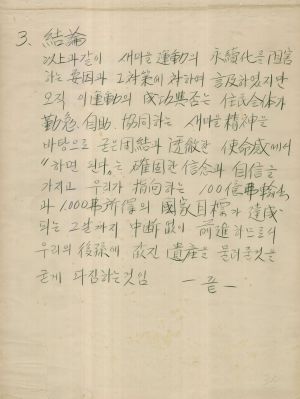 3. 結論
以上과 같이 새마을 運動의 永續化를 阻害
하는 要因과 그 対策에 対하여 言及하였지만
오직 이 運動의 成功與否는 住民全体가
勤勉, 自助, 協同하는 새마을 精神을
바탕으로 굳은 団結과 透徹한 使命感에서
"하면 된다"는 確固한 信念과 自信을
가지고 우리가 指向하는 100億弗輸出
과 1,000弗所得의 國家目標가 達成
되는 그날까지 中断없이 前進하므로서
우리의 後孫에 값진 遺産을 물려줄것을
굳게 다짐하는것임 — 끝 —